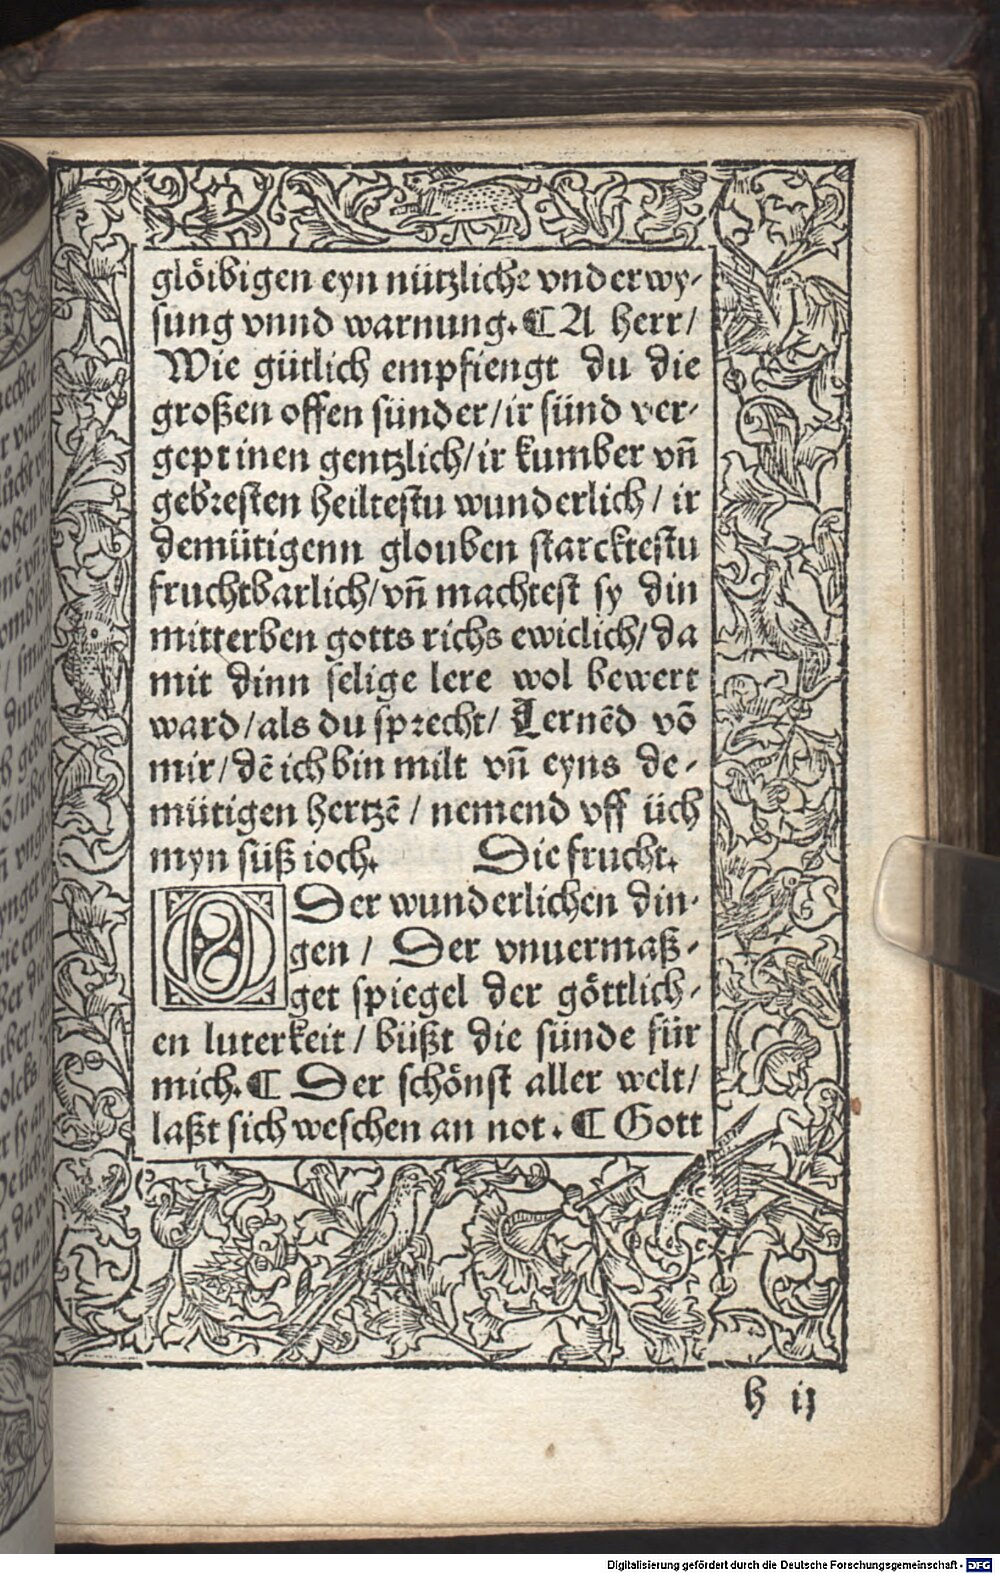 glöibigen eyn nützliche vnderwy-
sung vnnd warnung. ¶ A herr/
Wie gütlich empfiengt du die
großen offen sünder/ ir sünd ver-
gept inen gentzlich/ ir kumber vn̄
gebresten heiltestu wunderlich/ ir
demütigenn glouben starcktestu
fruchtbarlich/ vn̄ machtest sy din
mitterben gotts richs ewiclich/ da
mit dinn selige lere wol bewert
ward/ als du sprecht/ Lernēd vō
mir/ dē ich bin milt vn̄ eyns de-
mütigen hertzē/ nemend vff üch
myn süß ioch. Die frucht.
O Der wunderlichen din-
gen/ Der vnuermaß-
get spiegel der göttlich-
en luterkeit/ büßt die sünde für
mich. ¶ Der schönst aller welt/
laßt sich weschen an not. ¶ Gott
h ij
Digitalisierung gefördert durch die Deutsche Forschungsgemeinschaft - DFG